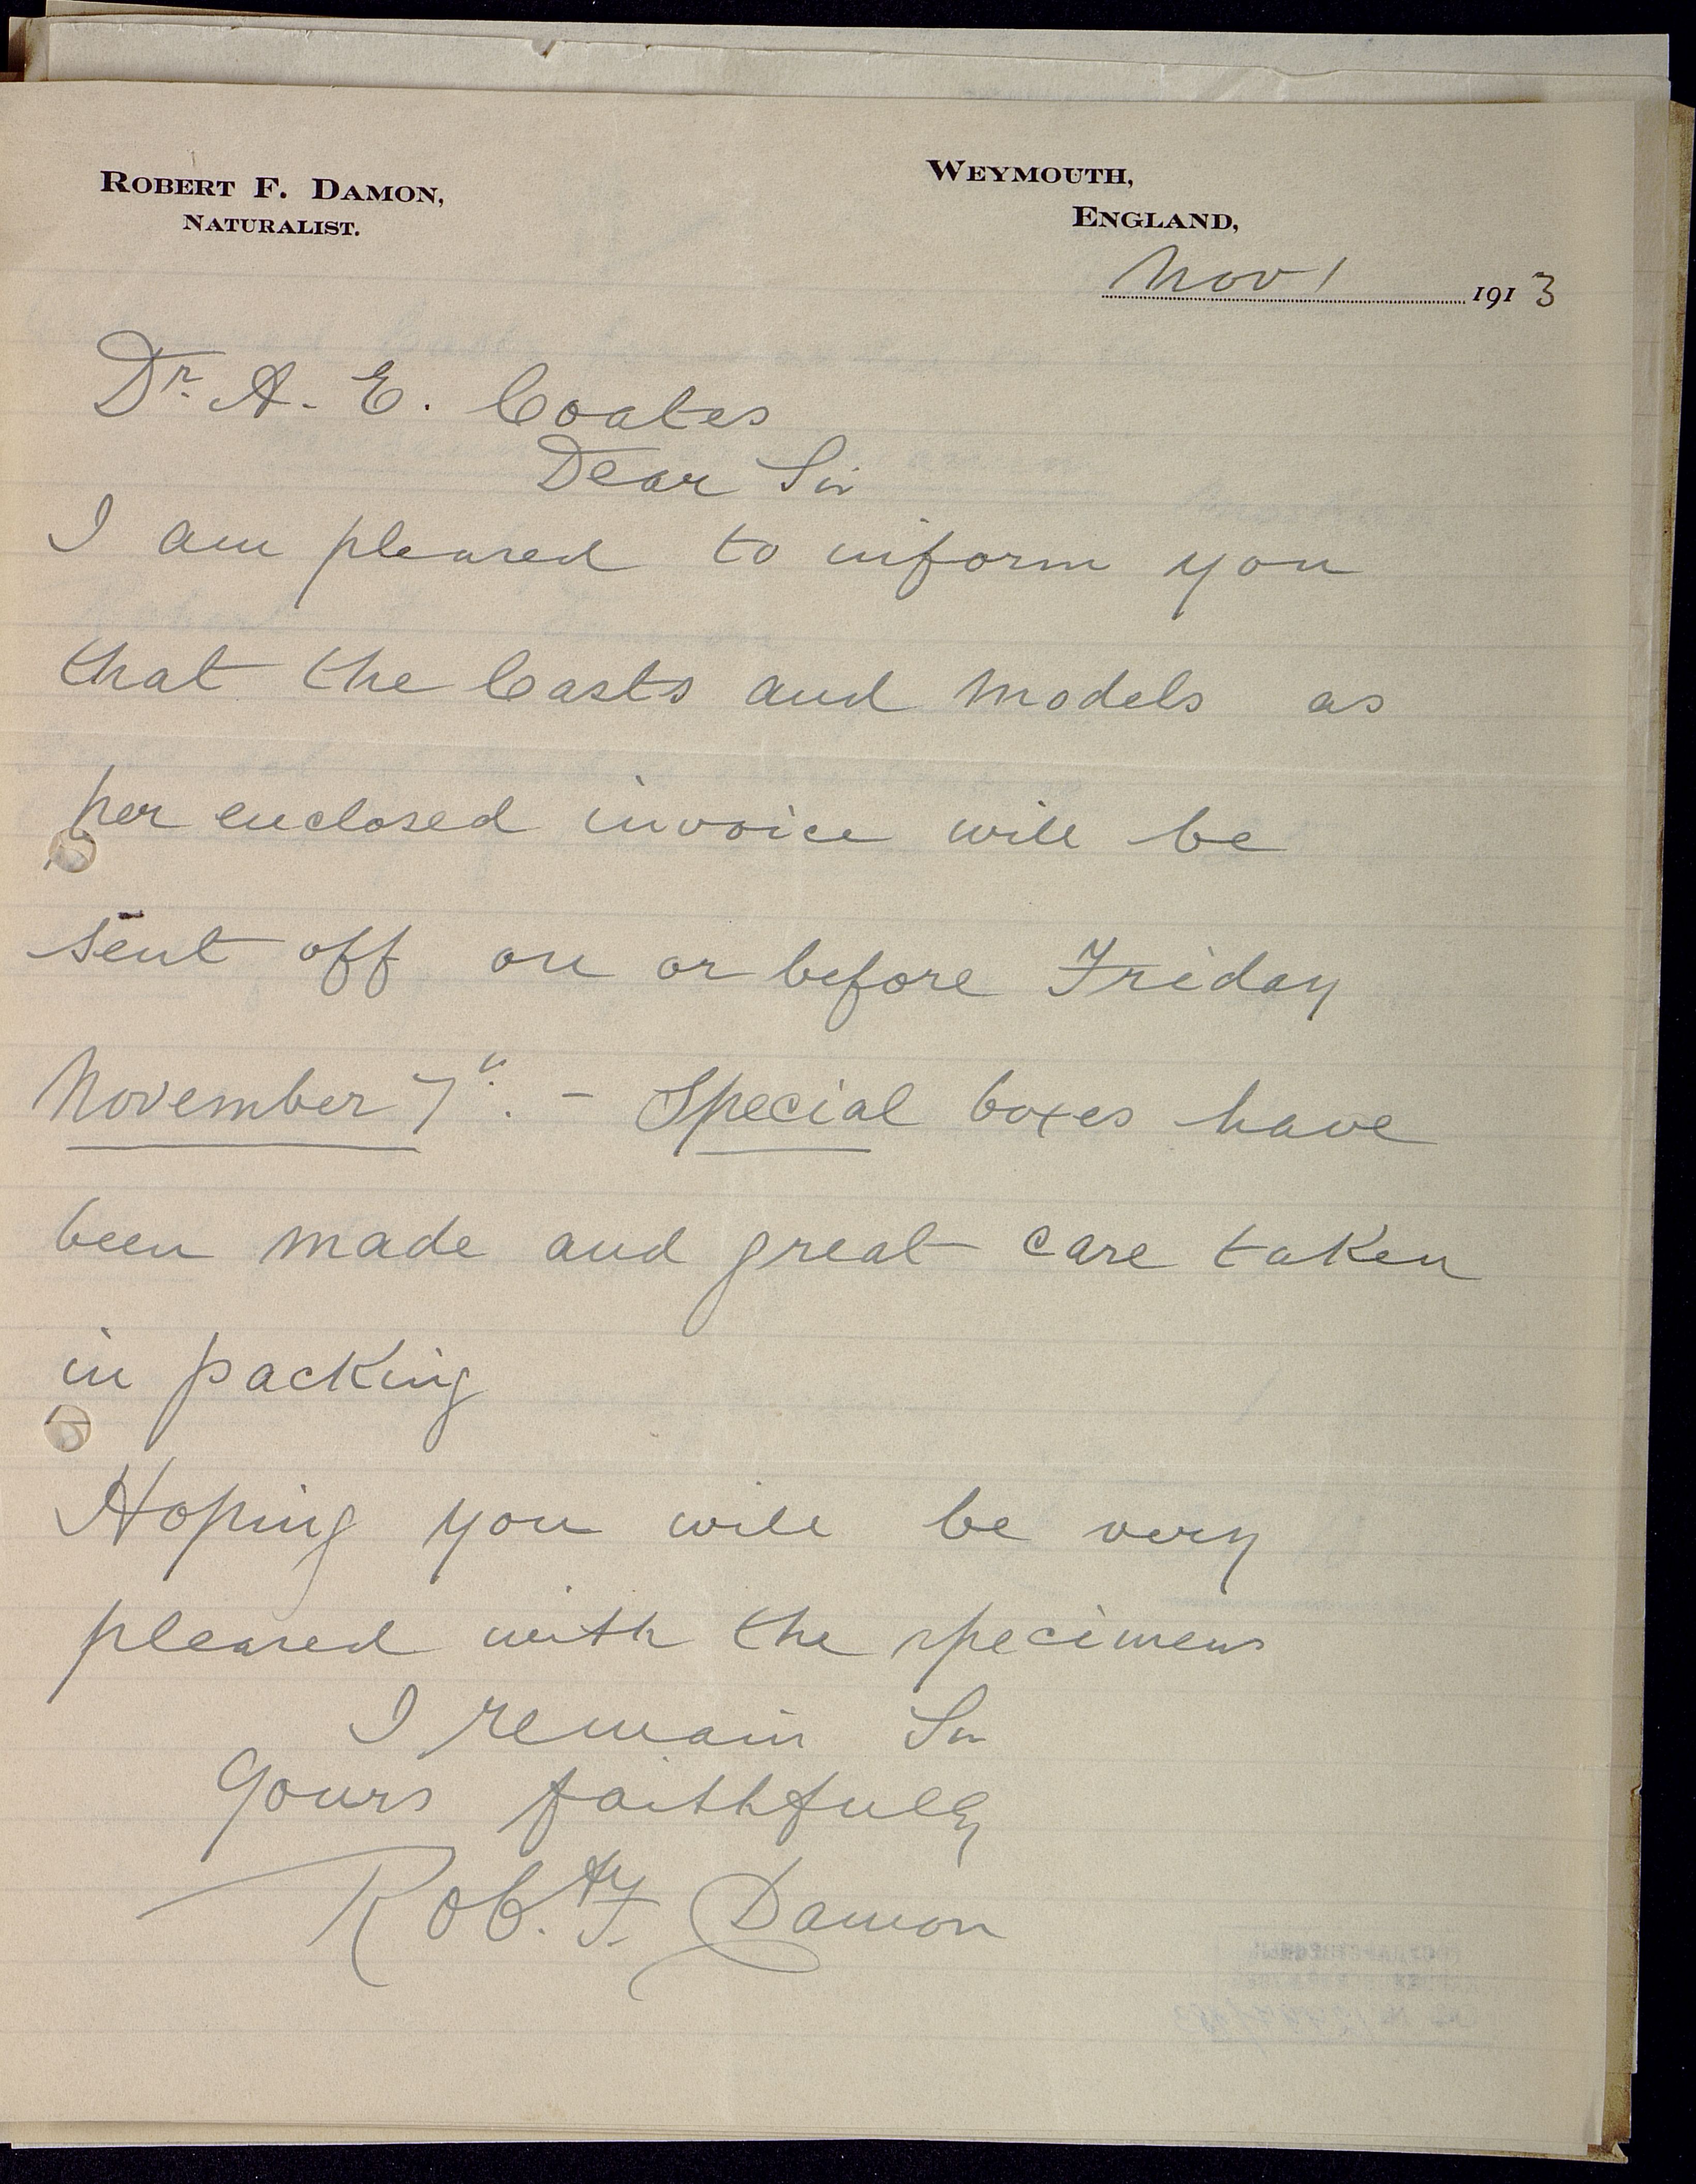 ROBERT F. DAMON,
NATURALIST.
WEYMOUTH,
ENGLAND,
Nov 1 1913
Dr. A. E. Coates
Dear Sir
I am pleased to inform you
that the Casts and Models as
per enclosed invoice will be
sent off on or before Friday
November 7". - Special boxes have
been made and great care taken
in packing
Hoping you will be very
pleased with the specimens
I remain Sir
Yours faithfully
Robt. F. Damon